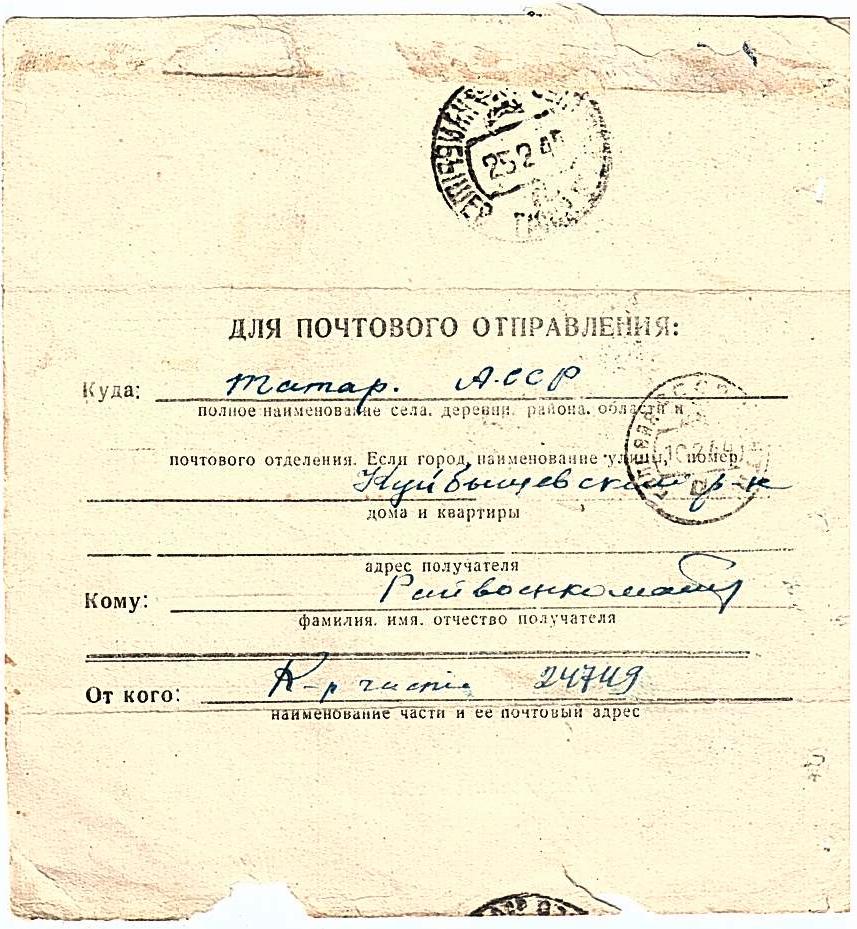 25 2 4
ДЛЯ ПОЧТОВОГО ОТПРАВЛЕНИЯ:
Куда: Татар. АССР
полное наименование села, деревни, района, области и
почтового отделения. Если город, наименование улицы, номер
Куйбышевский р-н
дома и квартиры
адрес получателя
Кому: Райвоенкомату
фамилия, имя, отчество получателя
От кого: К-р части 24749
наименование части и ее почтовый адрес